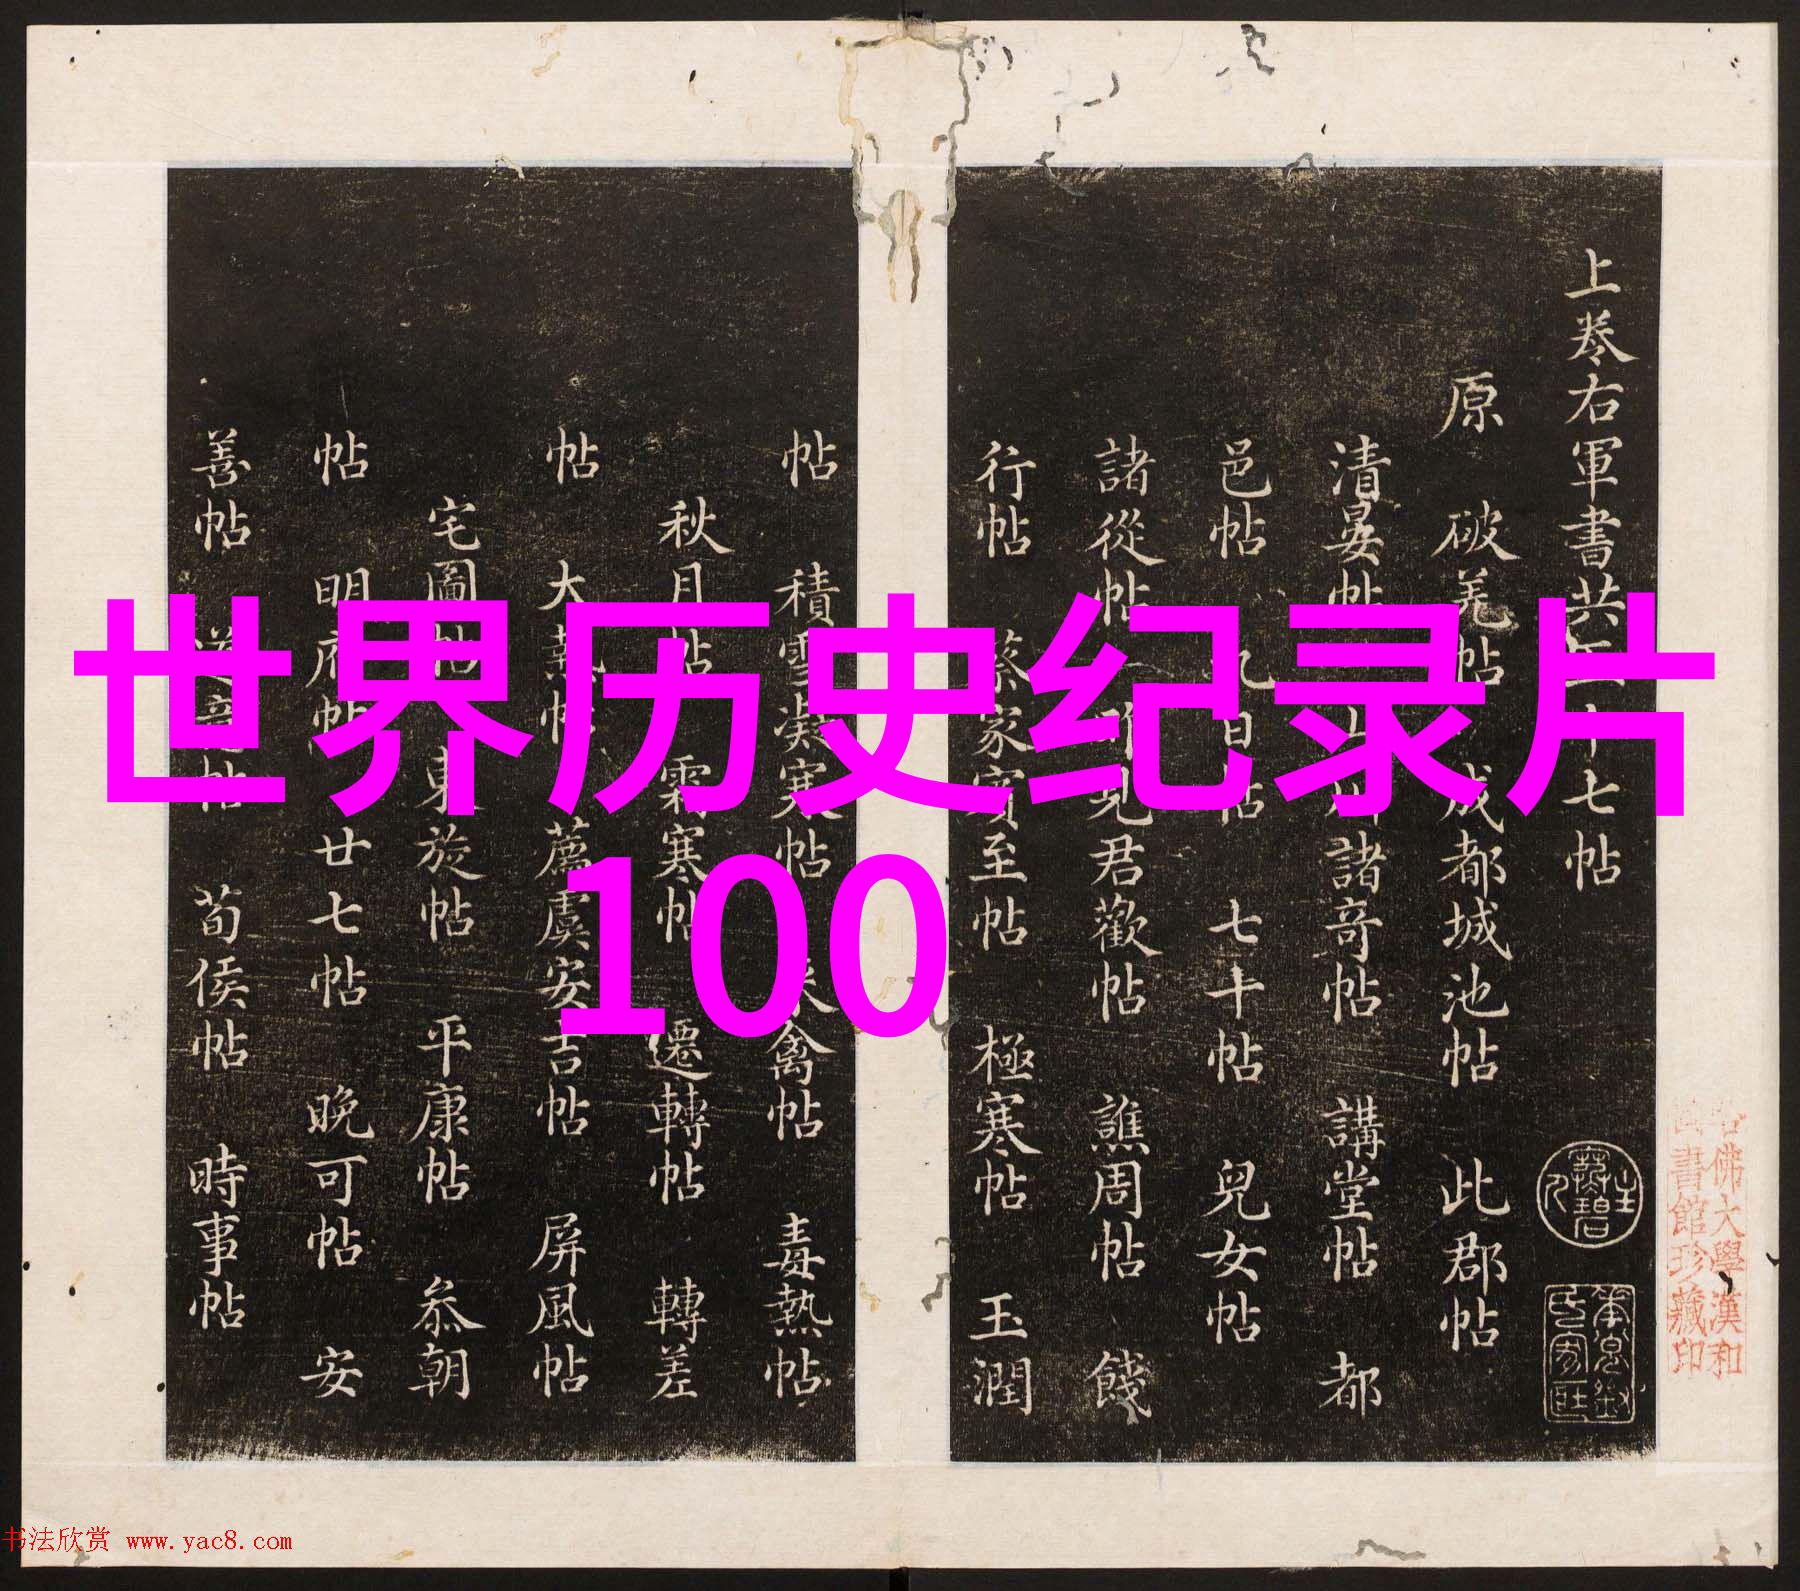 世界历史纪录片
100
上卷右軍書共十七帖
原 破羌帖 成都城池帖 此郡帖
清晏帖 山川諸奇帖 講堂帖 都
邑帖 九日帖 七十帖 兒女帖
諸從帖 見君歡帖 譙周帖 餞
行帖 蔡家賓至帖 極寒帖 玉潤
帖 積雪凝寒帖 來禽帖 毒熱帖
秋月帖 霜寒帖 遷轉帖 轉差
帖 大熱帖 薦虞安吉帖 屏風帖
宅圖帖 東旋帖 平康帖 叅朝
帖 明府帖 廿七帖 晚可帖 安
善帖 帖 荀侯帖 時事帖
佛大學漢和
書館珍藏印
书法欣赏 www.yac8.com